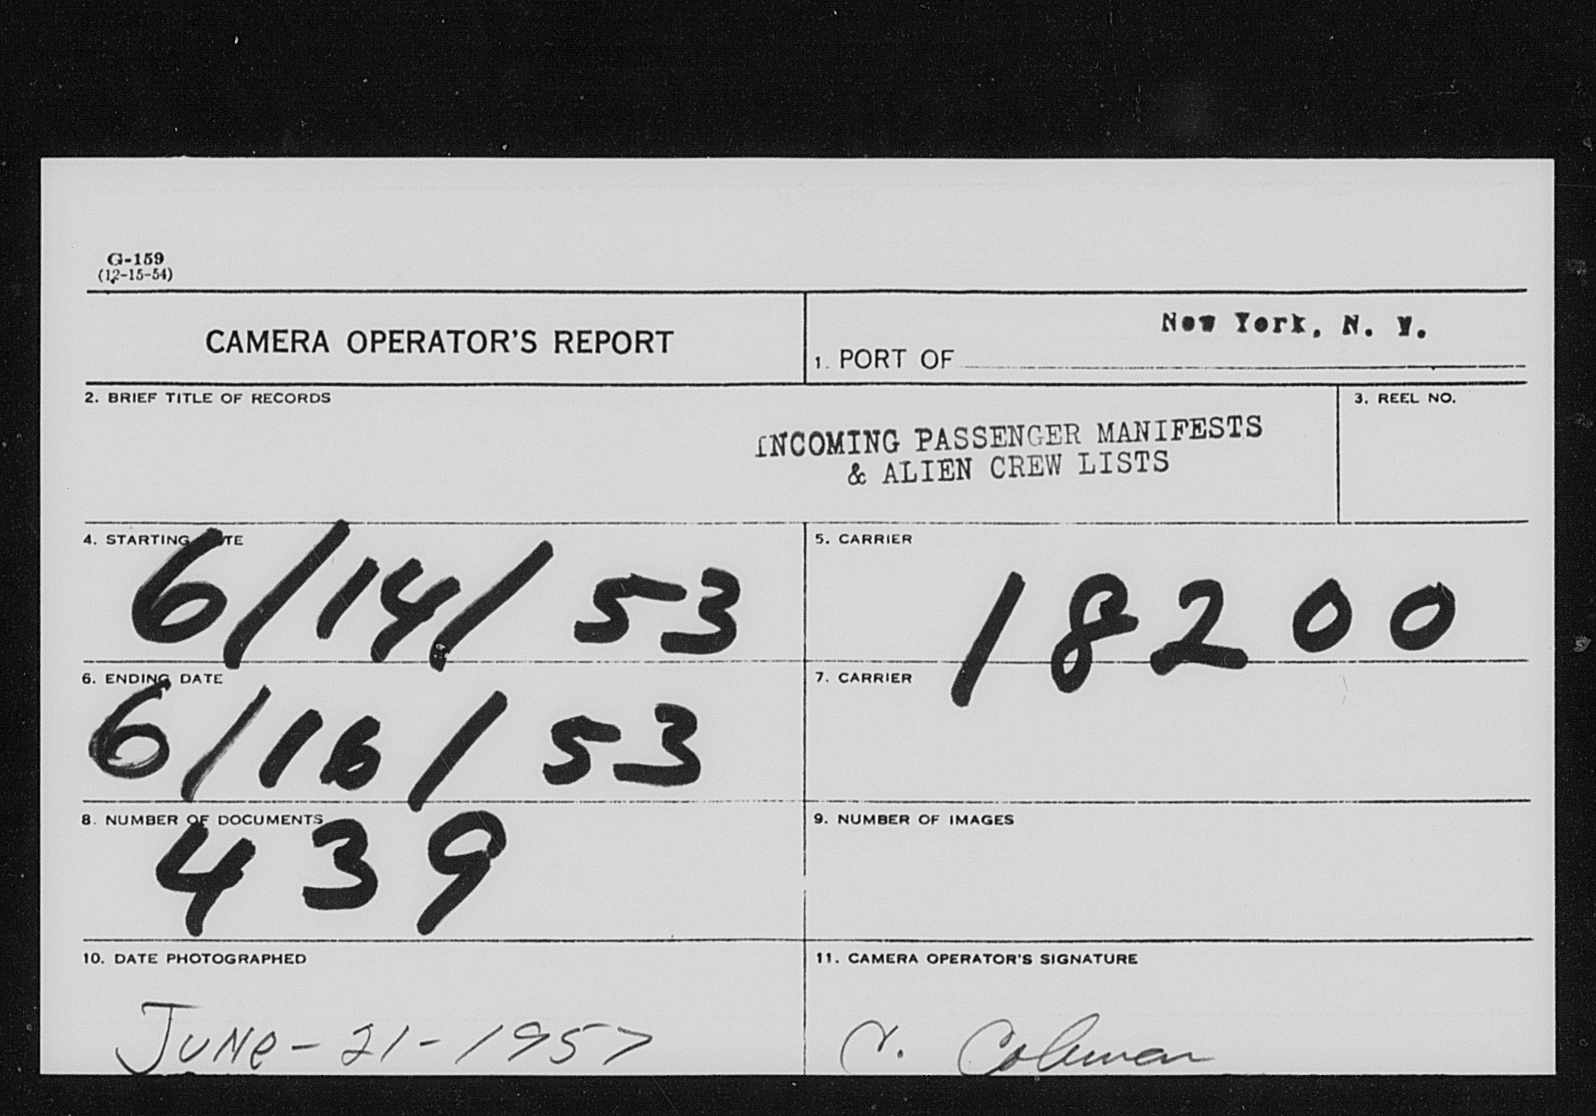 G-159
(12-15-54)
CAMERA OPERATOR'S REPORT
New York, N. Y.
1. PORT OF
2. BRIEF TITLE OF RECORDS
3. REEL NO.
INCOMING PASSENGER MANIFESTS
& ALIEN CREW LISTS
4. STARTING DATE
6/14/53
5. CARRIER
18200
6. ENDING DATE
6/16/53
7. CARRIER
8. NUMBER OF DOCUMENTS
439
9. NUMBER OF IMAGES
10. DATE PHOTOGRAPHED
JUNe-21-1957
11. CAMERA OPERATOR'S SIGNATURE
Coleman